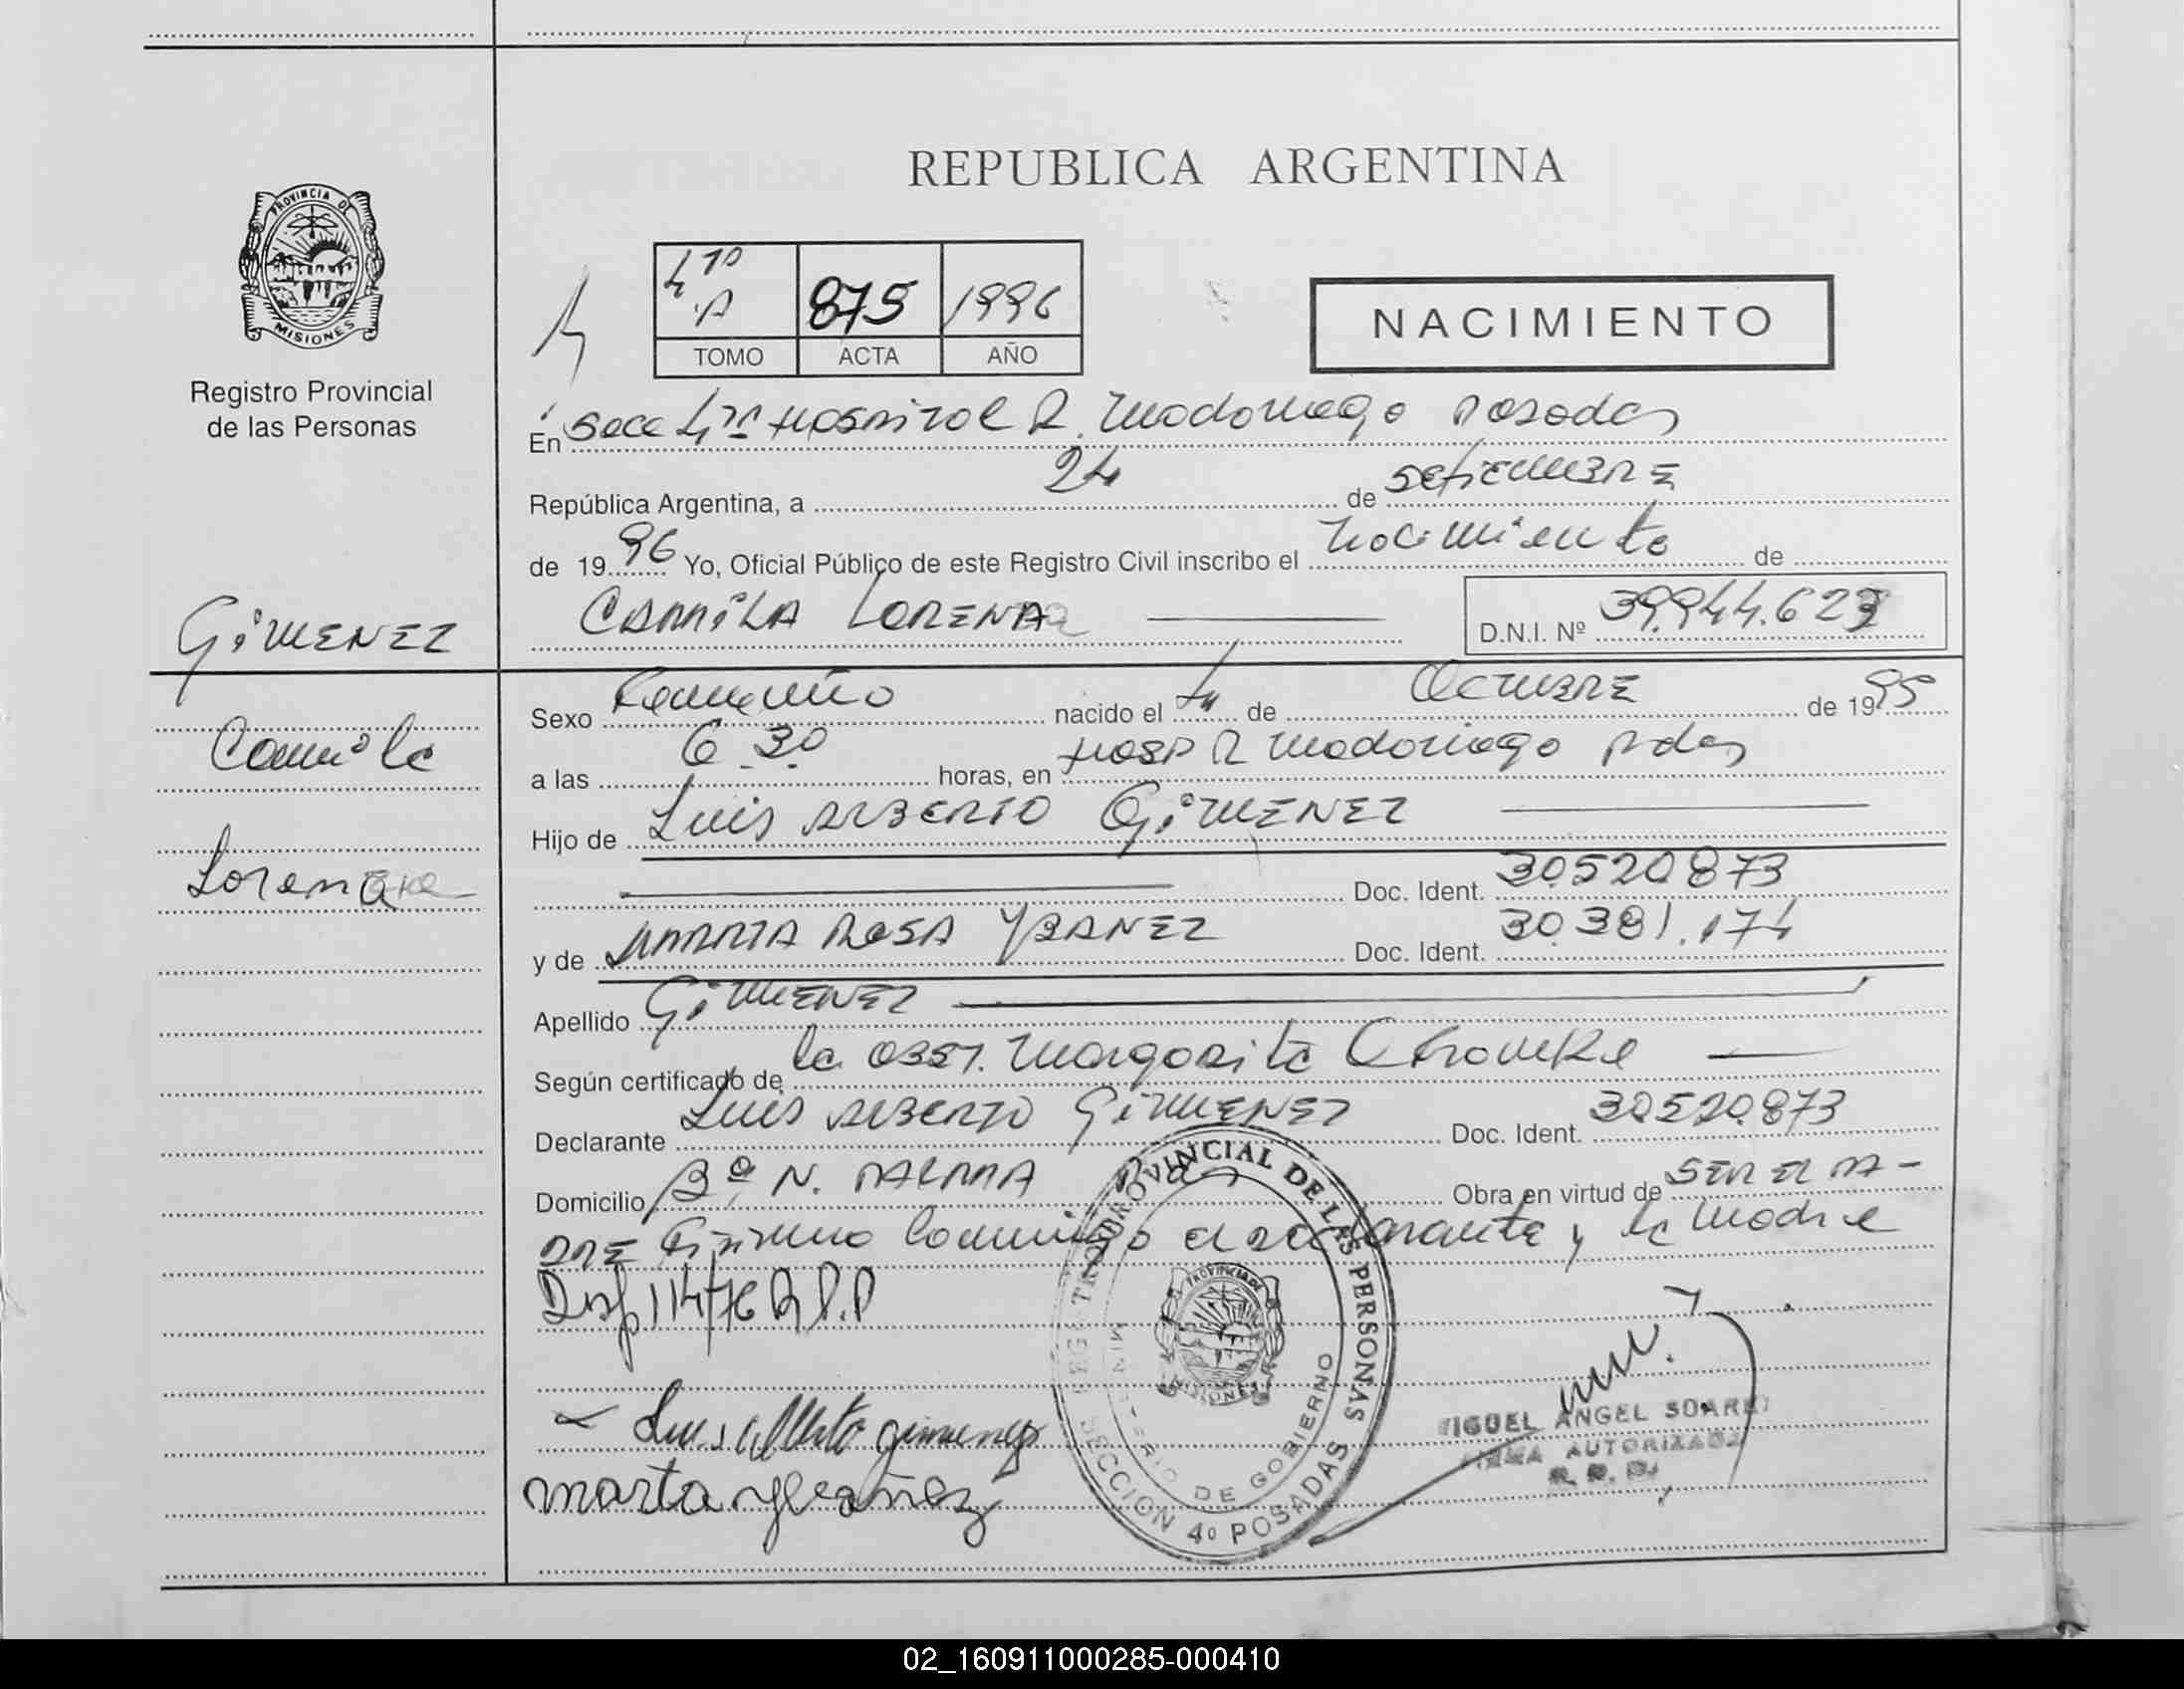 REPUBLICA ARGENTINA
PROVINCIA DE
MISIONES
Registro Provincial
de las Personas
4to
875
1996
TOMO
ACTA
AÑO
NACIMIENTO
En Secc 4ta Hospital R. Madariaga Posadas
República Argentina, a 24 de Setiembre
de 1996 Yo, Oficial Público de este Registro Civil inscribo el nacimiento de
CAMILA LORENA
D.N.I. Nº 39.944.623
GIMENEZ
Camila
Lorena
Sexo Femenino nacido el 4 de Octubre de 1995
a las 6.30 horas, en Hosp R Madariaga Pdas
Hijo de Luis Alberto GIMENEZ
Doc. Ident. 30.520.873
y de MARTA ROSA YBANEZ Doc. Ident. 30.381.174
Apellido GIMENEZ
Según certificado de la obst. Margarita
Declarante Luis Alberto GIMENEZ Doc. Ident. 30.520.873
Domicilio Bº N. PALMA Pdas Obra en virtud de SER EL PA-
DRE Firman conmigo el declarante y la madre
Disp 114/76 R.P.P
Luis Alberto gimenez
marta ybañez
REGISTRO PROVINCIAL DE LAS PERSONAS
MINISTERIO DE GOBIERNO
PROVINCIA DE
MISIONES
SECCION 4º POSADAS
MIGUEL ANGEL SOAREZ
FIRMA AUTORIZADA
R. P. P.
02_160911000285-000410